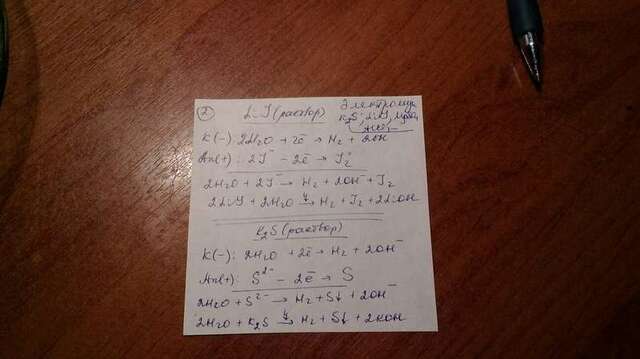 ② LiJ (раствор)
Электролиз
K₂S; LiJ,
K(-): 2H₂O + 2ē → H₂ + 2OH
An(+): 2J⁻ - 2ē → J₂
2H₂O + 2J⁻ → H₂ + 2OH⁻ + J₂
2LiJ + 2H₂O → H₂ + J₂ + 2LiOH
K₂S (раствор)
K(-): 2H₂O + 2ē → H₂ + 2OH⁻
An(+): S²⁻ - 2ē → S
2H₂O + S²⁻ → H₂ + S↓ + 2OH⁻
2H₂O + K₂S → H₂ + S↓ + 2KOH